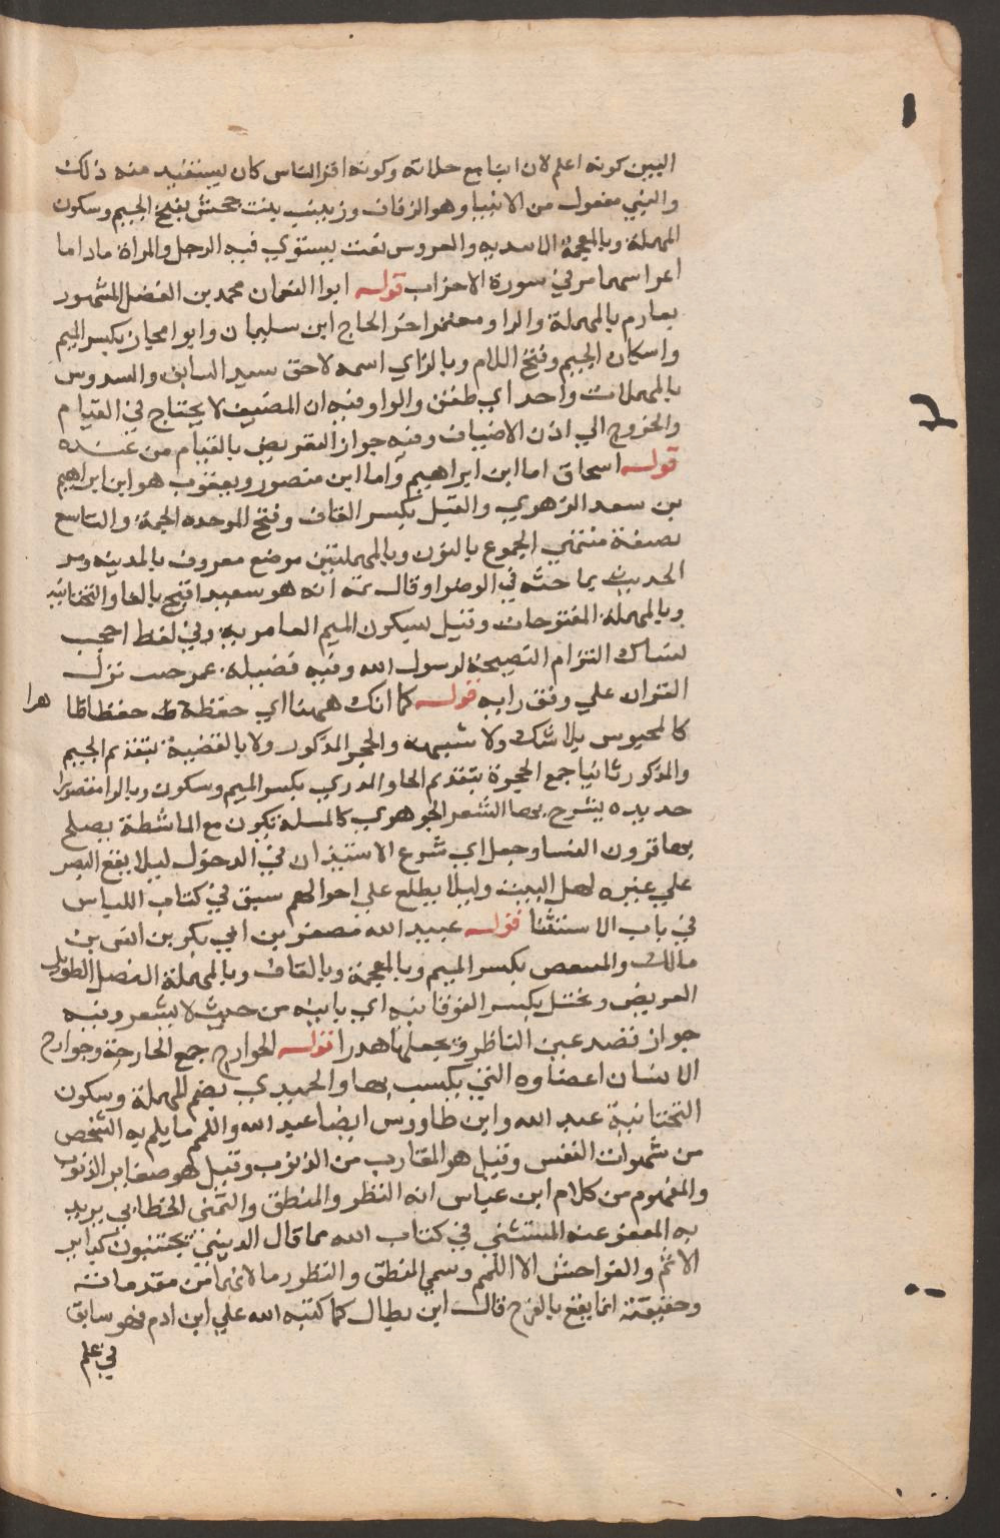 البين كونه اعلم لان ابيا مع جلالته وكونه اقرا الناس كان يستفيد منه ذلك
والنبي مفعول من الابتنا وهو الزفاف وزينب بنت جحش بفتح الجيم وسكون
المهملة وبالمعجمة الاسديه والعروس نعت يستوي فيه الرجل والمراة ماداما
اعراسهما مر في سورة الاحزاب قوله ابوا النعمان محمد بن الفضل المشهور
بعارم بالمهملة والرا ومعتمر اخو الحاج ابن سليمان وابوا مجلز بكسر الميم
واسكان الجيم وفتح اللام وبالزاي اسمه لاحق سعيد السابق والسدوس
بالمهملات واحد اي طفق والواو فيه ان المضيف لا يحتاج في القيام
والخروج الي اذن الاضياف وفيه جواز التعريض بالقيام من عنده
قوله اسحاق اما ابن ابراهيم واما ابن منصور ويعقوب هو ابن ابراهيم
بن سعد الزهري والقبل بكسر القاف وفتح الموحده الجهة والمناصع
بصيغة منتهي الجموع بالنون وبالمهملتين موضع معروف بالمدينه ومر
الحديث بمباحثه في الوضو او قال ثمه انه هو سعيد افيح بالفا والتحتانيه
وبالمهملة المفتوحات وقيل بسكون الميم العامرية وفي لفظ احجب
نساك التزام النصيحة لرسول الله وفيه فضيلة عمر حيث نزل
القران علي وفق رايه قوله كما انك ههنا اي حفظه حفظا ظاهرا
كالمحسوس بلا شك ولا شبهه والحجر المذكور ولا بالقضية بتقديم الجيم
والمذكور ثانيا جمع الحجرة بتقديم الحا والمدري بكسر الميم وسكون وبالرا مقصورا
حديده يشرح بها الشعر الجوهري كالمسلة تكون مع الماشطة يصلح
بها قرون النسا وجعل اي شرع الاستيذان في الدخول ليلا يقع البصر
علي عيره لهل البيت وليلا يطلع علي احوالهم سبق في كتاب اللباس
في باب الاستنثا قوله عبيد الله مصغر بن ابي بكر بن انس بن
مالك والمسقص بكسر الميم وبالمعجمة وبالقاف وبالمهملة النصل الطويل
العريض ويختل بكسر الفوقانيه اي ياتيه من حيث لا يشعر وفيه
جواز قصد عين الناظر وبجعلها هدرا قوله الجوارح جمع الجارحة وجوارح
الانسان اعضاوه التي يكتسب بها والحميدي بضم المهملة وسكون
التحتانية عبد الله وابن طاووس ايضا عبد الله واللمم ما يلم به الشخص
من شهوات النفس وقيل هو المقارب من الذنوب وقيل هو صغاير الذنوب
والمفهوم من كلام ابن عباس انه النظر والمنطق والتمني الخطابي يريد
به المعفو عنه المستثني في كتاب الله مما قال الذين يجتنبون كباير
الاثم والفواحش الا اللمم وسمي المنطق والنظور ما لانهما من مقدماته
وحقيقته انما يقع بالفرج قال ابن بطال كلما كتبه الله علي ابن ادم فهو سابق
في علم